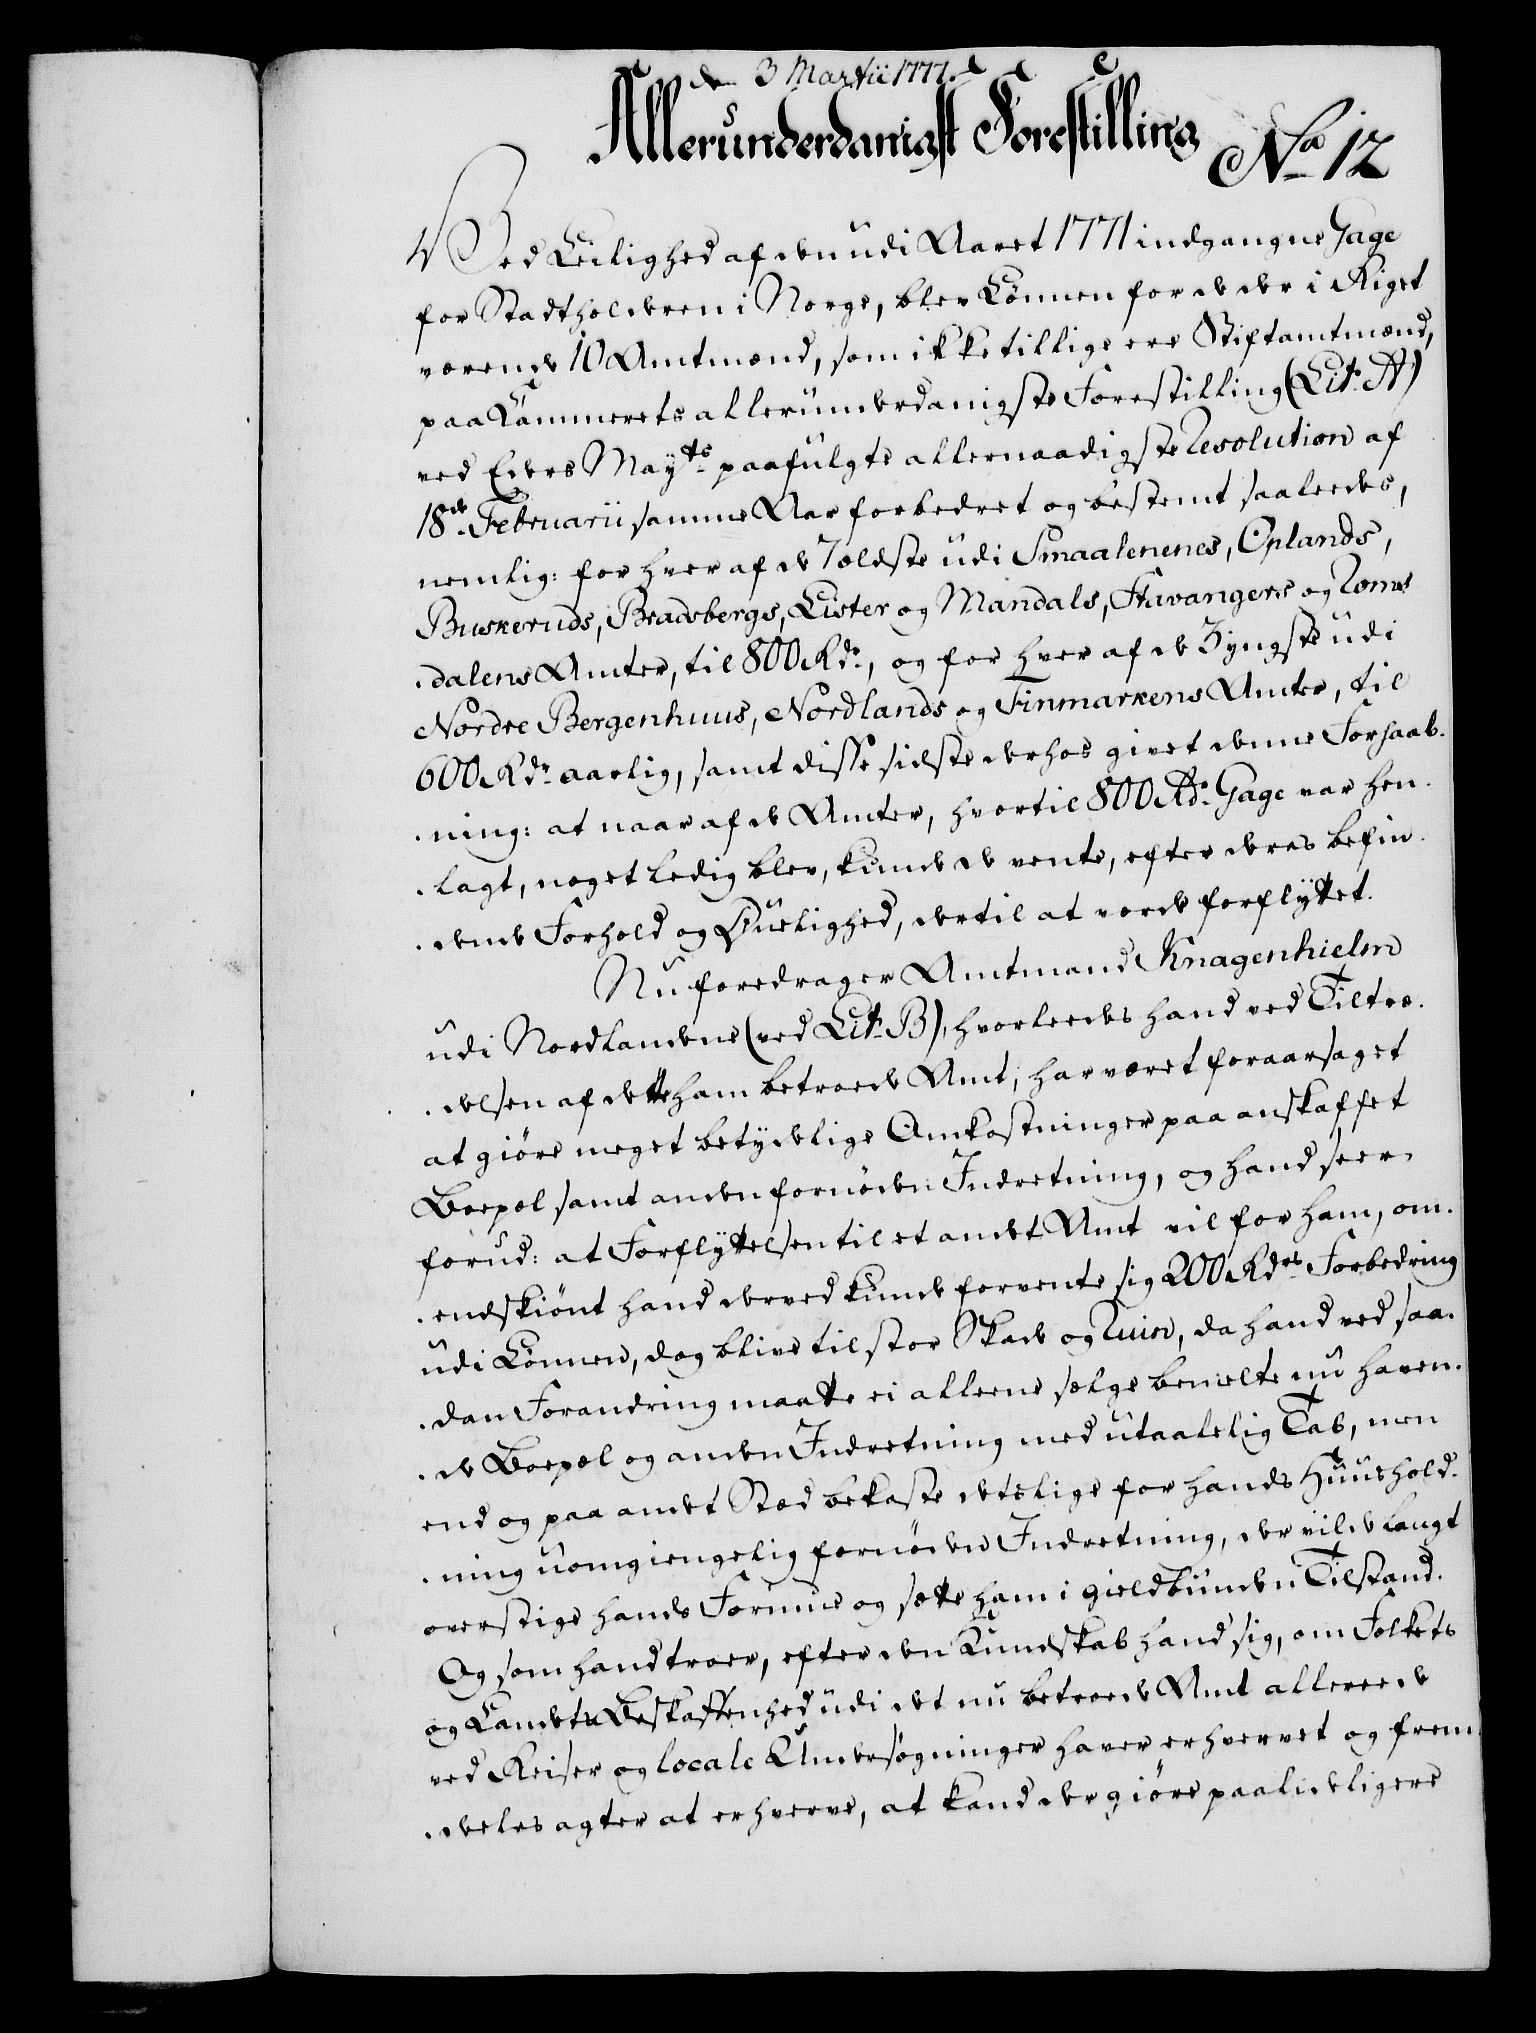 d. 3 Martii 1777.
Allerunderdanigst Forestilling
No 12
Ved Leilighed af den udi Aaret 1771 indgangne Gage
for Stadtholderen i Norge, blev Lønnen for de der i Riget
værende 10 Amtmænd, som ikke tillige ere Stiftamtmænd,
paa Kammerets allerunderdanigste Forestilling (Lit. A)
ved Eders Mayts paafulgte allernaadigste Resolution af
18de Februarii samme Aar forbedret og bestemt saaledes,
nemlig: for hver af de 7 ældste udi Smaalenenes, Oplands,
Buskeruds, Bradsbergs, Lister og Mandals, Stavangers og Roms
-dalens Amter, til 800 Rdr., og for hver af de 3 yngste udi
Nordre Bergenhuus, Nordlands og Finmarkens Amter, til
600 Rdr. aarlig, samt disse sidste derhos givet denne Forhaab-
-ning: at naar af de Amter, hvortil 800 Rdr. Gage var hen-
-lagt, noget ledig blev, kunde de vente, efter deres befin-
-dende Forhold og Duelighed, dertil at vorde forflyttet.
Nu foredrager Amtmand Knagenhielm
udi Nordlandene (ved Lit. B), hvorledes hand ved Tiltræ-
-delsen af dette ham betroede Amt, har været foraarsaget
at giøre meget betydelige Omkostninger paa anskaffet
Boepæl samt anden fornøden Indretning, og hand seer
forud: at Forflyttelsen til et andet Amt vil for ham, om-
-endskiønt hand derved kunde forvente sig 200 Rdrs Forbedring
udi Lønnen, dog blive til stor Skade og Ruin, da hand ved saa-
-dan Forandring maatte ei alleene sælge bemelte nu haven-
-de Boepæl og anden Indretning med utaalelig Tab, men
end og paa andet Sted bekoste deslige for hands Huushold-
-ning uomgiengelig fornøden Indretning, der vilde langt
overstige hands Formue og sætte ham i gieldbunden Tilstand.
Og som hand troer, efter den Kundskab hand sig, om Folkets
og Landets Beskaffenhed udi det nu betroede Amt allereede
ved Reiser og locale Undersøgninger haver erhvervet og frem-
-deles agter at erhverve, at kand der giøre paalideligere